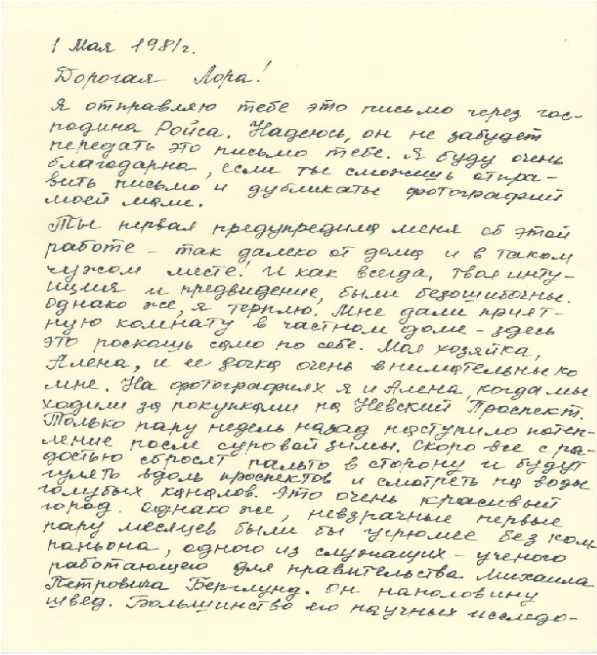 1 Мая 1981г.
Дорогая Лора!
Я отправляю тебе это письмо через гос-
подина Ройса. Надеюсь, он не забудет
передать это письмо тебе. Я буду очень
благодарна, если ты сможешь отпра-
вить письмо и дубликаты фотографий
моей маме.
Ты первая предупредила меня об этой
работе – так далеко от дома и в таком
чужом месте! И как всегда, твоя инту-
иция и предвидение, были безошибочны.
Однако же, я терплю. Мне дали прият-
ную комнату в частном доме – здесь
это роскошь само по себе. Моя хозяйка,
Алена, и ее дочка очень внимательные ко
мне. На фотографиях я и Алена, когда мы
ходили за покупками на Невский Проспект.
Только пару недель назад наступило потеп-
ление после суровой зимы. Скоро все с ра-
достью сбросят пальто в сторону и будут
гулять вдоль проспектов и смотреть на воды
голубых каналов. Это очень красивый
город. Однако же, невзрачные первые
пару месяцев были бы угрюмее без ком
паньона, одного из служащих – ученого
работающего для правительства Михаила
Петровича Берглунд. Он наполовину
швед. Большинство его научных исследо-